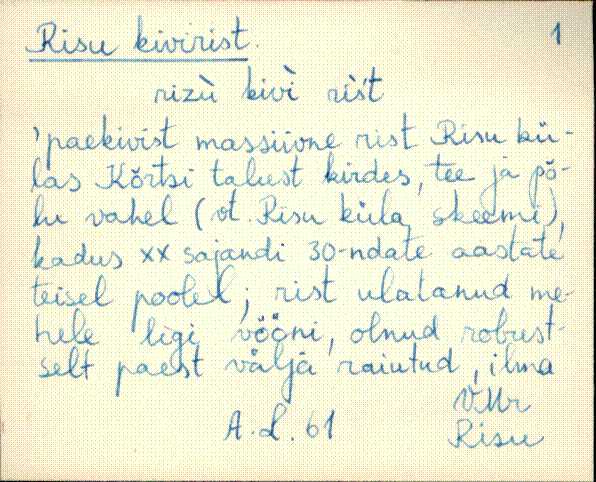 Risu kivirist. 1
rizù kivì rìst
'paekivist massiivne rist Risu kü-
las Kõrtsi talust kirdes, tee ja põ-
lu vahel (vt. Risu küla skeemi),
kadus XX sajandi 30-ndate aastate
teisel poolel; rist ulatanud me-
hele ligi vööni, olnud robust-
selt paest välja raiutud, ilma
V.Mr
A.L. 61 Risu